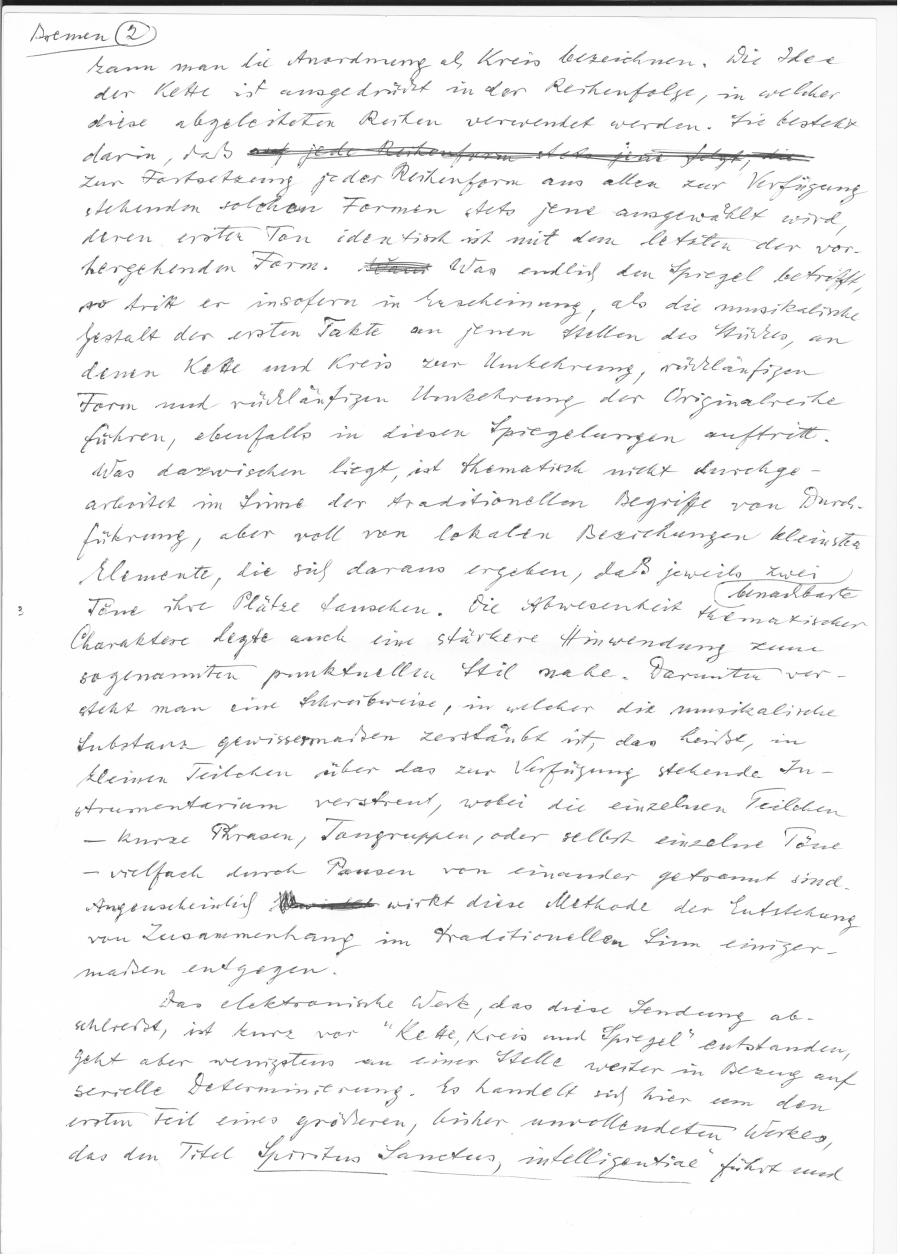 Bremen 2
kann man die Anordnung als Kreis bezeichnen. Die Idee
der Kette ist ausgedrückt in der Reihenfolge, in welcher
diese abgeleiteten Reihen verwendet werden. Sie besteht
darin, daß auf jede Reihenform stets jene folgt, die
zur Fortsetzung jeder Reihenform aus allen zur Verfügung
stehenden solchen Formen stets jene ausgewählt wird,
deren erster Ton identisch ist mit dem letzten der vor-
hergehenden Form. Was endlich den Spiegel betrifft,
so tritt er insofern in Erscheinung, als die musikalische
Gestalt der ersten Takte an jenen Stellen des Stückes, an
denen Kette und Kreis zur Umkehrung, rückläufigen
Form und rückläufigen Umkehrung der Originalreihe
führen, ebenfalls in diesen Spiegelungen auftritt.
Was dazwischen liegt, ist thematisch nicht durchge-
arbeitet im Sinne der traditionellen Begriffe von Durch-
führung, aber voll von lokalen Beziehungen kleinster
Elemente, die sich daraus ergeben, daß jeweils zwei
benachbarte
Töne ihre Plätze tauschen. Die Abwesenheit thematischer
Charaktere legte auch eine stärkere Hinwendung zum
sogenannten punktuellen Stil nahe. Darunter ver-
steht man eine Schreibweise, in welcher die musikalische
Substanz gewissermaßen zerstäubt ist, das heißt, in
kleinen Teilchen über das zur Verfügung stehende In-
strumentarium verstreut, wobei die einzelnen Teilchen
— kurze Phrasen, Tongruppen, oder selbst einzelne Töne
— vielfach durch Pausen von einander getrennt sind.
Augenscheinlich wirkt diese Methode der Entstehung
von Zusammenhang im traditionellen Sinn einiger-
maßen entgegen.
Das elektronische Werk, das diese Sendung ab-
schließt, ist kurz vor "Kette, Kreis und Spiegel" entstanden,
geht aber wenigstens an einer Stelle weiter in Bezug auf
serielle Determinierung. Es handelt sich hier um den
ersten Teil eines größeren, bisher unvollendeten Werkes,
das den Titel Spiritus Sanctus, intelligentiae" führt und